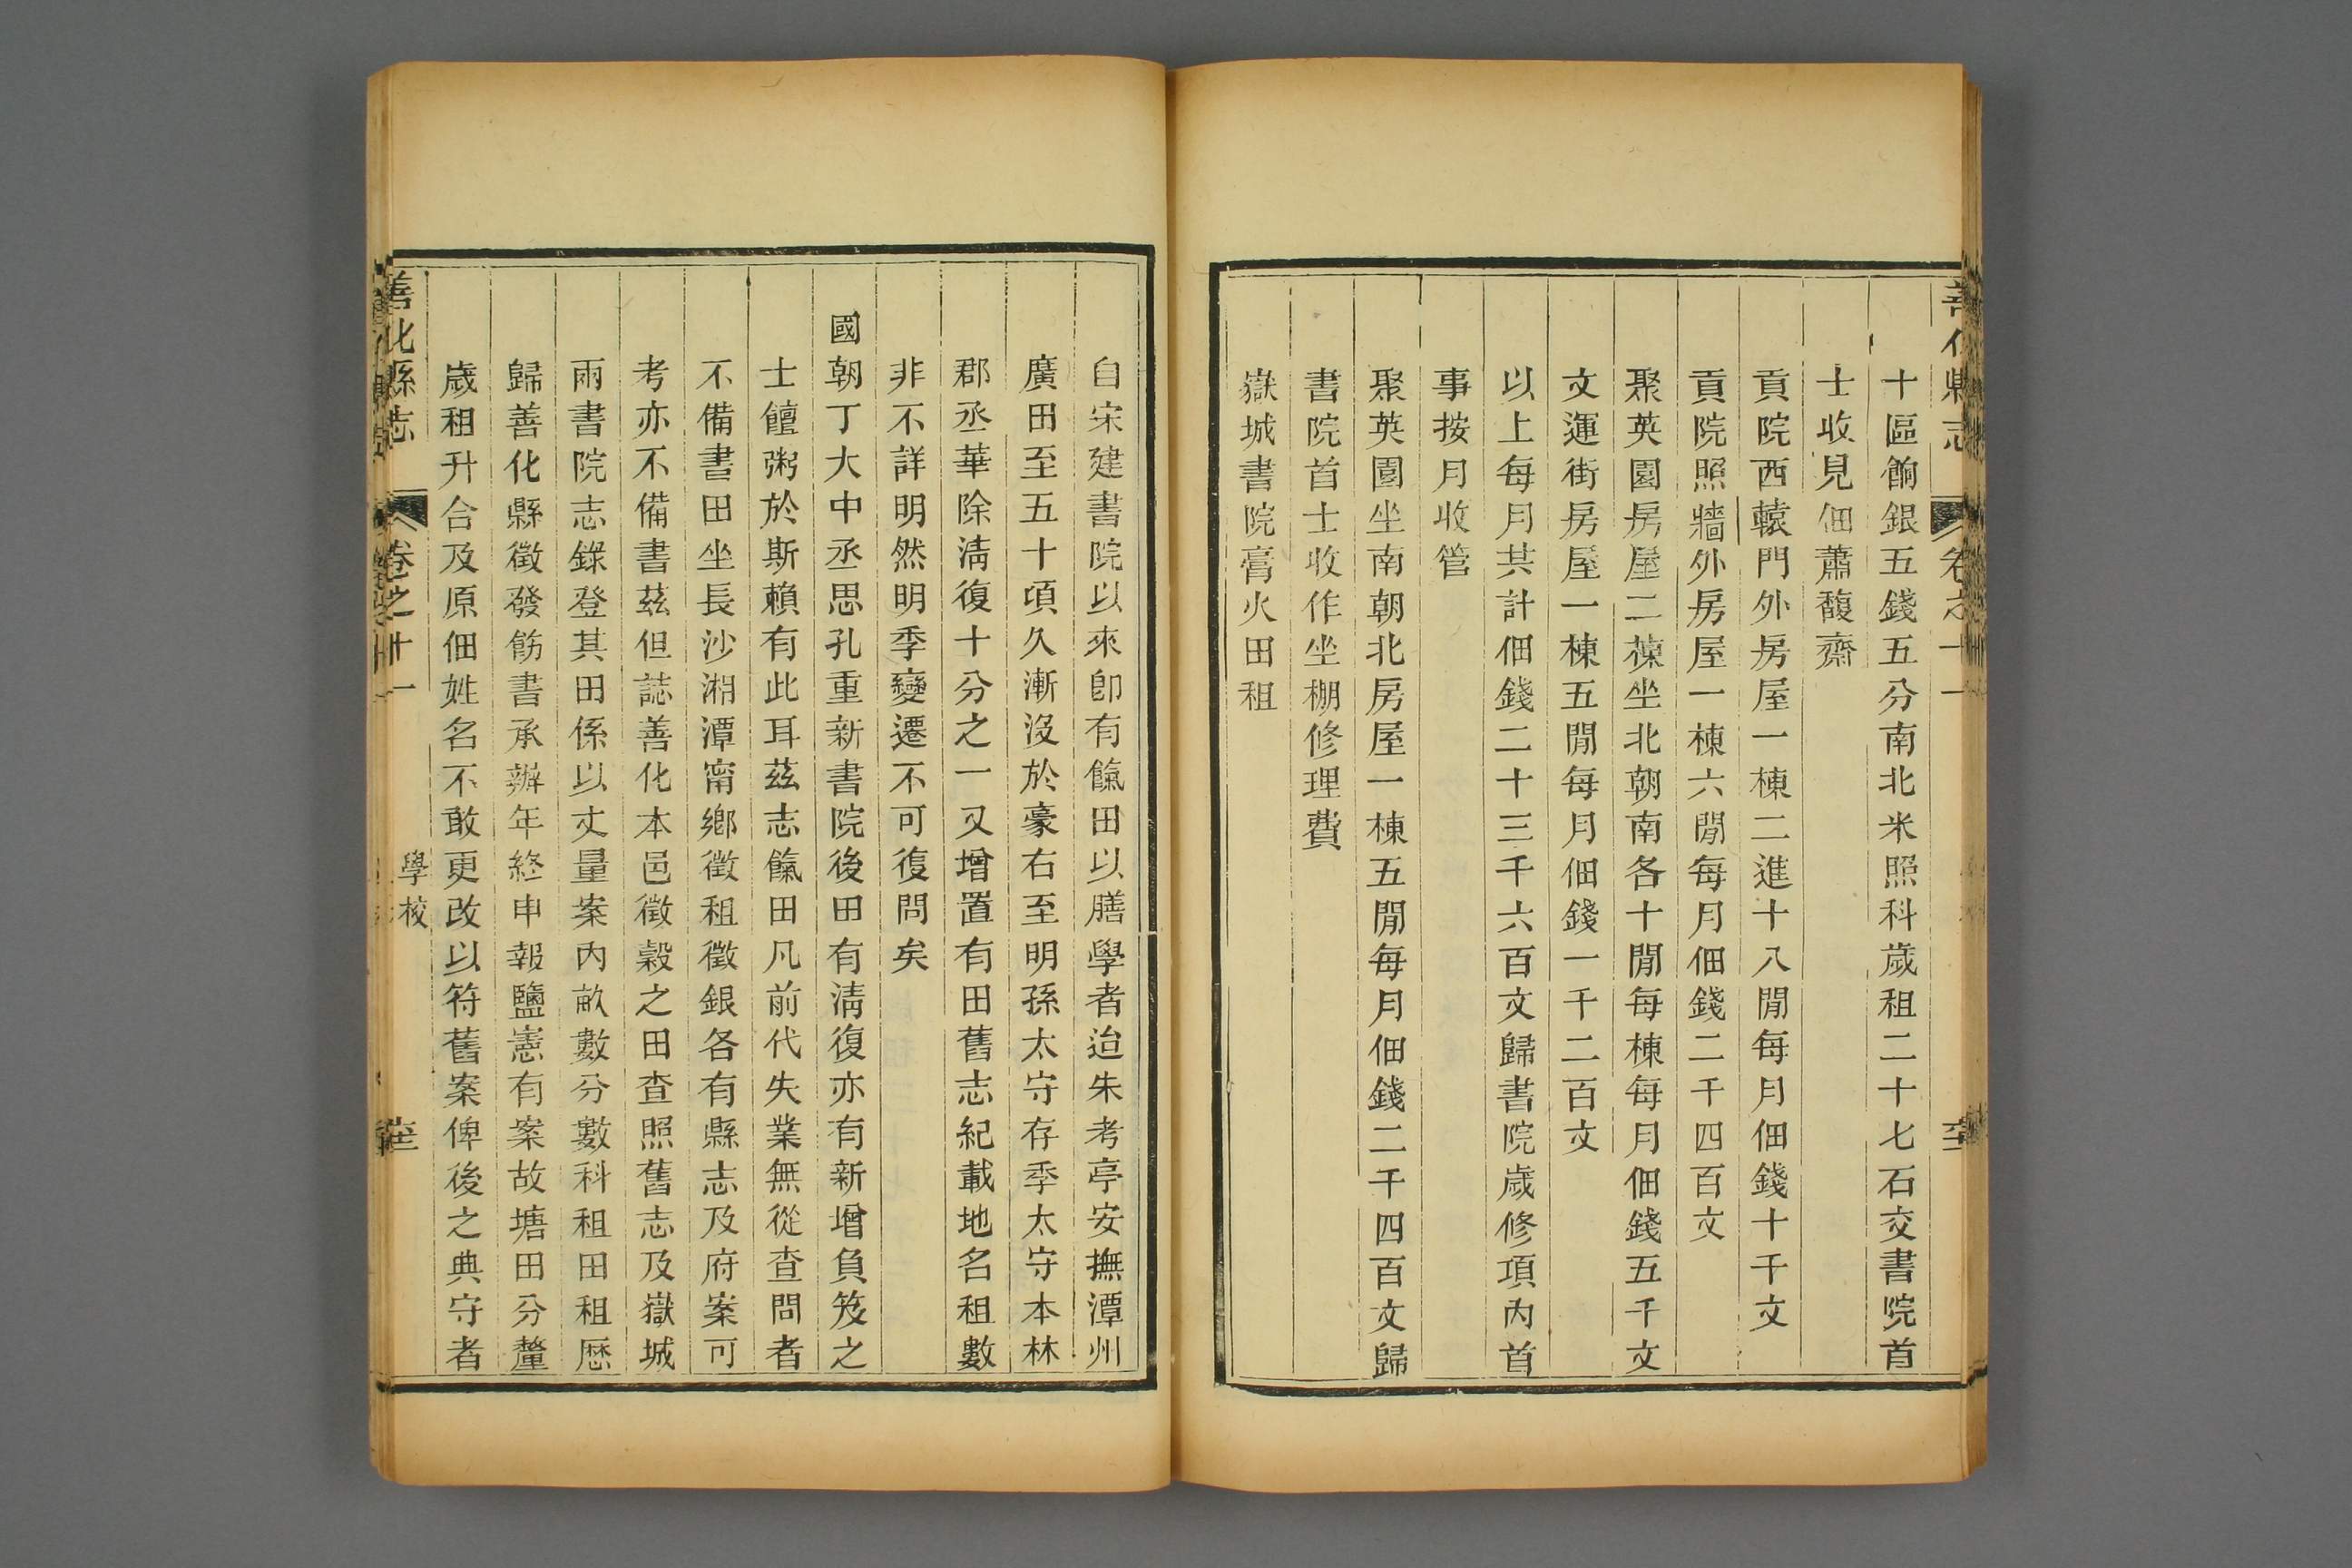 十區餉銀五錢五分南北米照科歲租二十七石交書院首
士收見佃蕭馥齋
貢院西轅門外房屋一棟二進十八閒每月佃錢十千文
貢院照牆外房屋一棟六閒每月佃錢二千四百文
聚英園房屋二棟坐北朝南各十閒每棟每月佃錢五千文
文運街房屋一棟五閒每月佃錢一千二百文
以上每月共計佃錢二十三千六百文歸書院歲修項內首
事按月收管
聚英園坐南朝北房屋一棟五閒每月佃錢二千四百文歸
書院首士收作坐棚修理費
嶽城書院膏火田租
自宋建書院以來卽有餼田以膳學者迨朱考亭安撫潭州
廣田至五十頃久漸沒於豪右至明孫太守存季太守本林
郡丞華除淸復十分之一又增置有田舊志紀載地名租數
非不詳明然明季變遷不可復問矣
國朝丁大中丞思孔重新書院後田有淸復亦有新增負笈之
士饘粥於斯賴有此耳茲志餼田凡前代失業無從查問者
不備書田坐長沙湘潭甯鄉徵租徵銀各有縣志及府案可
考亦不備書茲但誌善化本邑徵穀之田查照舊志及嶽城
兩書院志錄登其田係以丈量案內畝數分數科租田租歷
歸善化縣徵發飭書承辦年終申報鹽憲有案故塘田分釐
歲租升合及原佃姓名不敢更改以符舊案俾後之典守者
善化縣志
卷之十一
學校